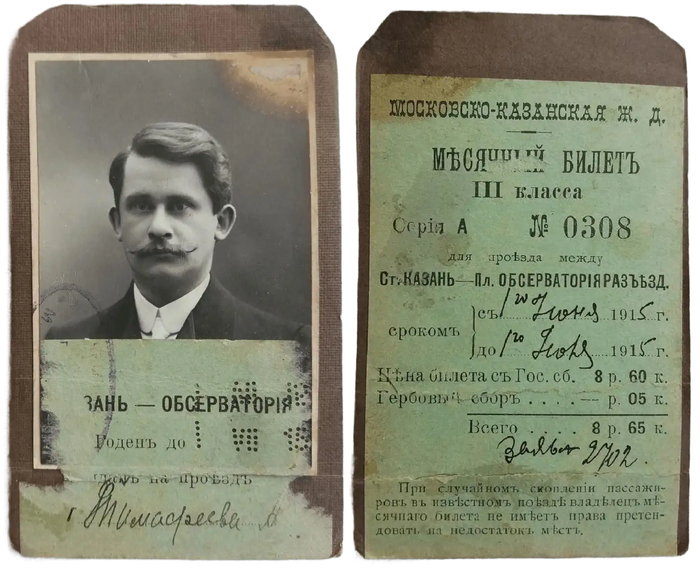 ЗАНЬ — ОБСЕРВАТОРІЯ
Годенъ до
на проѣздъ
г. Тимофеева
МОСКОВСКО-КАЗАНСКАЯ Ж. Д.
МѢСЯЧНЫЙ БИЛЕТЪ
III класса
Серія А № 0308
для проѣзда между
Ст. КАЗАНЬ—Пл. ОБСЕРВАТОРІЯ РАЗЪѢЗД.
срокомъ
съ 1го Іюня 1915 г.
до 1го Іюля 1915 г.
Цѣна билета съ Гос. сб. 8 р. 60 к.
Гербовый сборъ . . . . — р. 05 к.
Всего . . . . 8 р. 65 к.
2702.
При случайномъ скопленіи пассажи-
ровъ въ извѣстномъ поѣздѣ владѣлецъ мѣ-
сячнаго билета не имѣетъ права претен-
довать на недостатокъ мѣстъ.